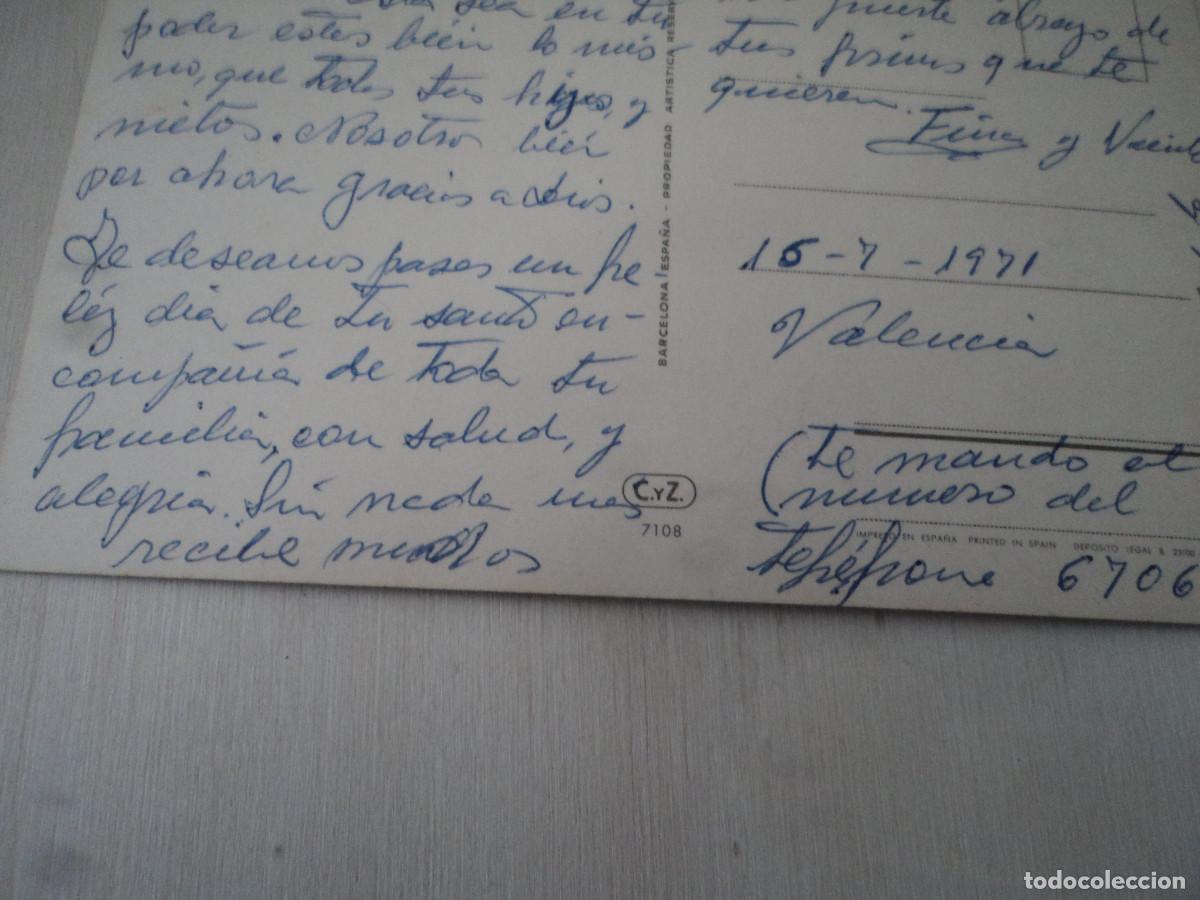 esta sea en tu
poder estes bién lo mis-
mo, que todos tus hijos, y
nietos. Nosotros bién
por ahora gracias a Dios.
Te deseamos pases un fe-
léz dia de tu santo en-
compañia de toda tu
familia, con salud, y
alegria. Sin nada mas
recibe
C.YZ.
7108
BARCELONA ESPAÑA - PROPIEDAD ARTISTICA RESERV
fuerte abrazo de
tus primos que te
quieren.
Fina y
15-7-1971
Valencia
(te mando el
numero del
IMPRESO EN ESPAÑA PRINTED IN SPAIN DEPOSITO LEGAL B.
telefono 6706
todocoleccion